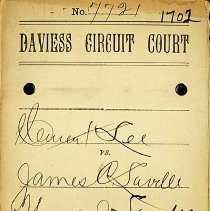 No. 7721 1702
DAVIESS CIRCUIT COURT
Clement Lee
vs.
James C Saville